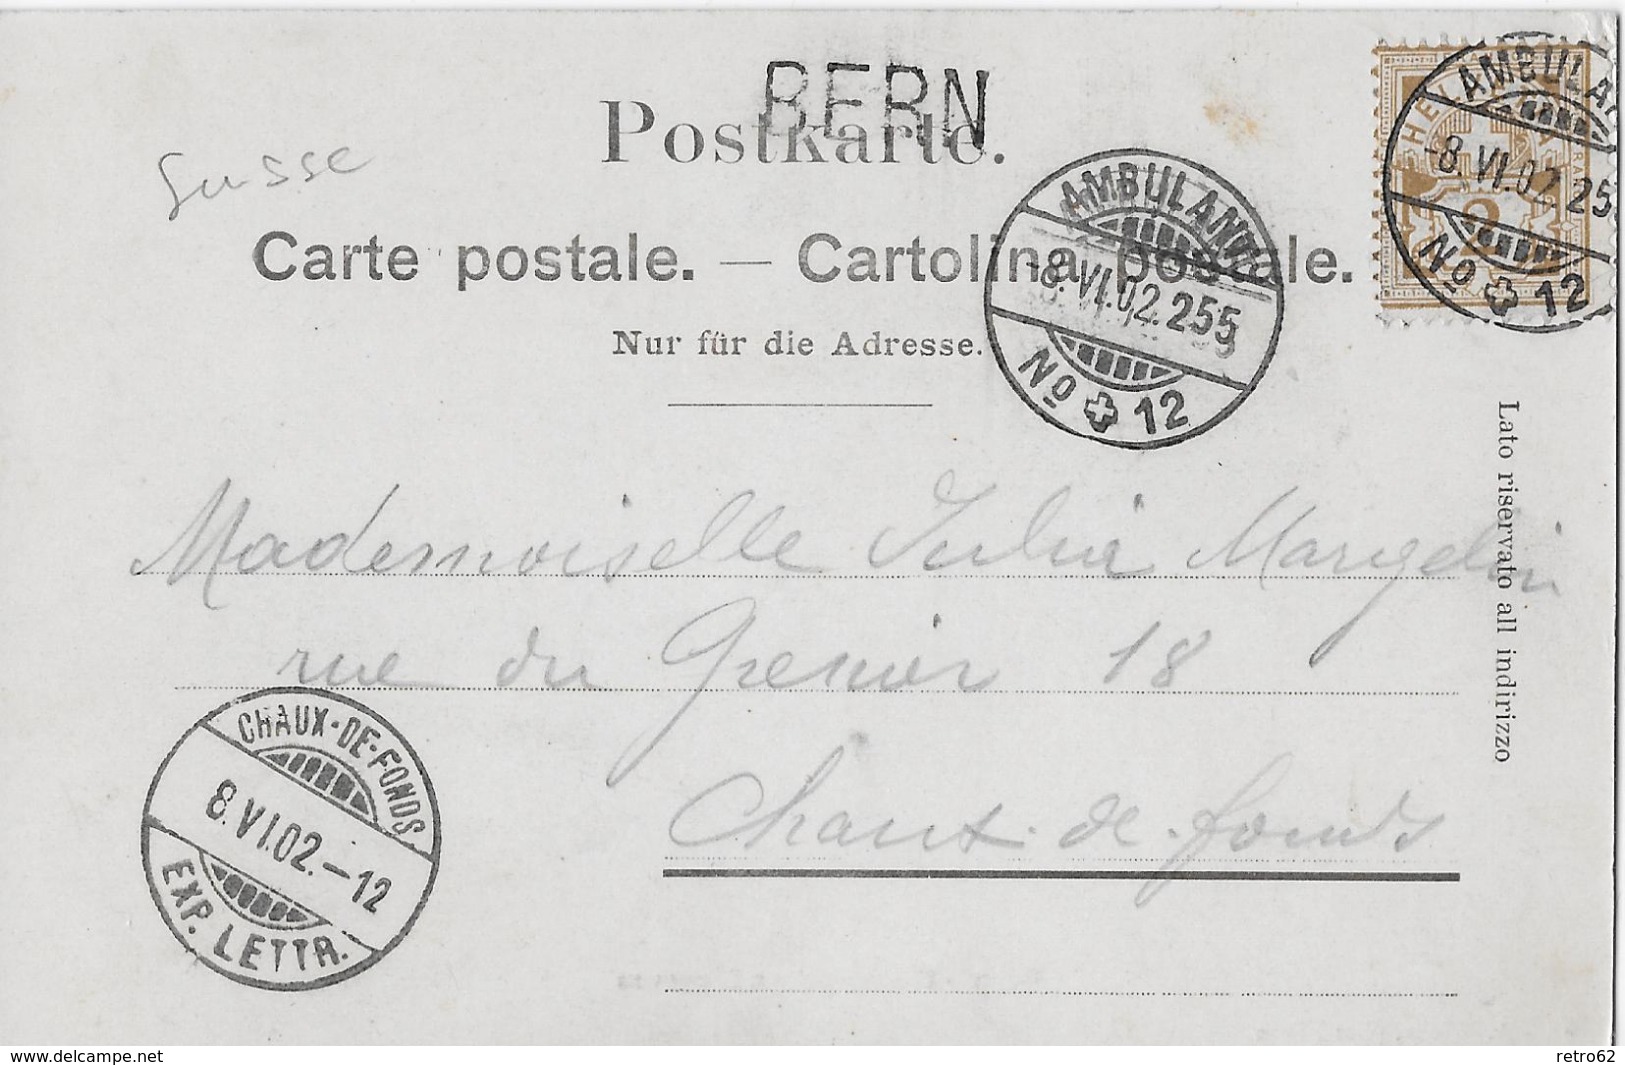 BERN
Postkarte.
Suisse
Carte postale. — Cartolina postale.
Nur für die Adresse.
AMBULANT
-8.VI.02.255
No 12
HELVETIA
AMBULANT
-8.VI.02.255
No 12
Lato riservato all indirizzo
Mademoiselle Julia
rue du Grenier 18
Chaux-de-fonds
CHAUX-DE-FONDS
8.VI.02.-12
EXP. LETTR.
www.delcampe.net
retro62